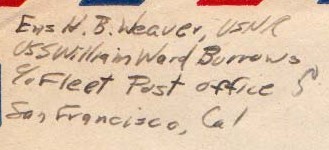 Ens H. B. Weaver, USNR
USS William Ward Burrows
℅ Fleet Post office
San Francisco, Cal